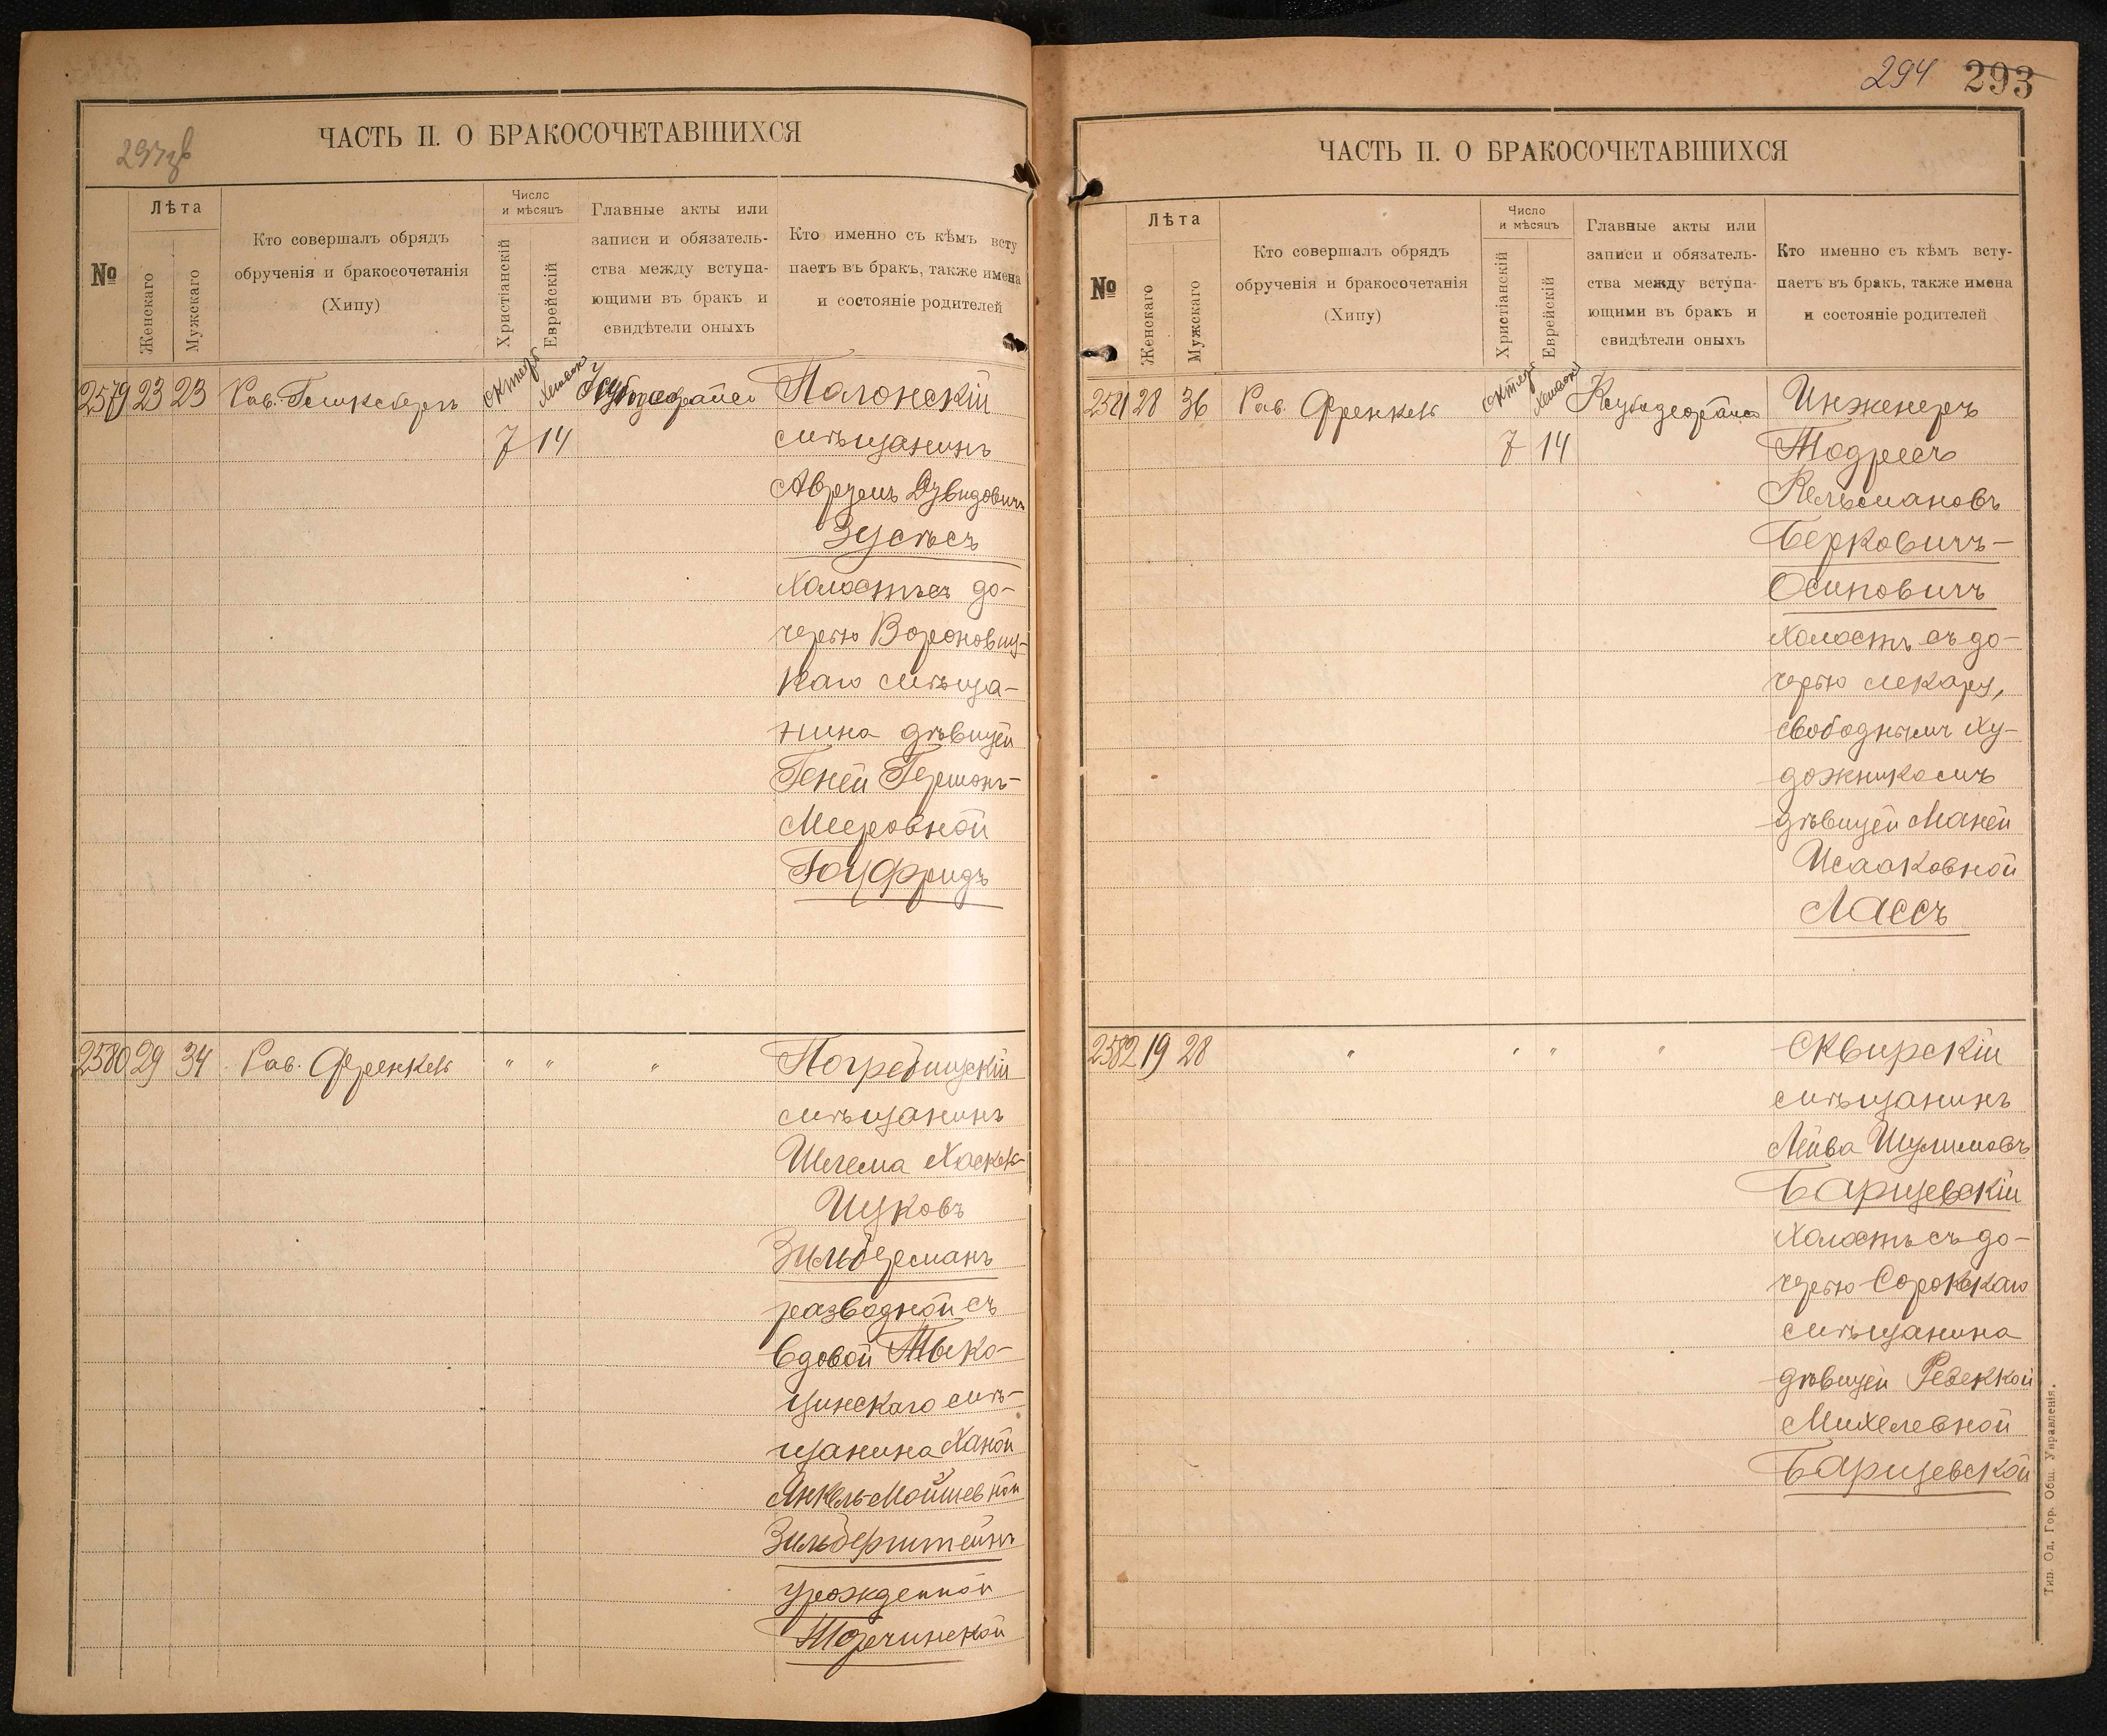 293 об
ЧАСТЬ II. О БРАКОСОЧЕТАВШИХСЯ
№
Лѣта
Женскаго
Мужскаго
Кто совершалъ обрядъ
обрученія и бракосочетанія
(Хипу)
Число
и мѣсяцъ
Христіанскій
Еврейскій
Главные акты или
записи и обязатель-
ства между вступа-
ющими въ бракъ и
свидѣтели оныхъ
Кто именно съ кѣмъ всту
паетъ въ бракъ, также имена
и состояніе родителей
2579 23 23 Рав. октяб Полонскій
7 14 мѣщанинъ
Аврумъ Дувидовичъ
Зусьесъ
холостъ съ до-
черью Вороновиц-
каго мѣща-
нина дѣвицей
Геней Гершонъ-
Мееровной
Гоцфридъ
2580 29 34 Рав. Френкель " " " Погребищскій
мѣщанинъ
Шлема Хаскель-
Ицковъ
Зильберманъ
разводной съ
вдовой Тыко-
цинскаго мѣ-
щанина Ханой
Янкель-Мойшевной
Зильберштейнъ
урожденной
Торчинской
294 293
ЧАСТЬ II. О БРАКОСОЧЕТАВШИХСЯ
№
Лѣта
Женскаго
Мужскаго
Кто совершалъ обрядъ
обрученія и бракосочетанія
(Хипу)
Число
и мѣсяцъ
Христіанскій
Еврейскій
Главные акты или
записи и обязатель-
ства между вступа-
ющими въ бракъ и
свидѣтели оныхъ
Кто именно съ кѣмъ всту-
паетъ въ бракъ, также имена
и состояніе родителей
2581 28 36 Рав. Френкель октяб Инженеръ
7 14 Тодресъ
Кельмановъ
Берковичъ-
Осиповичъ
холостъ съ до-
черью лекаря,
свободнымъ ху-
дожникомъ
дѣвицей Маней
Исааковной
Лассъ
2582 19 28 " " " " Сквирскій
мѣщанинъ
Лейва Шулимовъ
Барщевскій
холостъ съ до-
черью Сорокскаго
мѣщанина
дѣвицей Ревеккой
Михелевной
Барщевской
Тип. Од. Гор. Общ. Управленія.